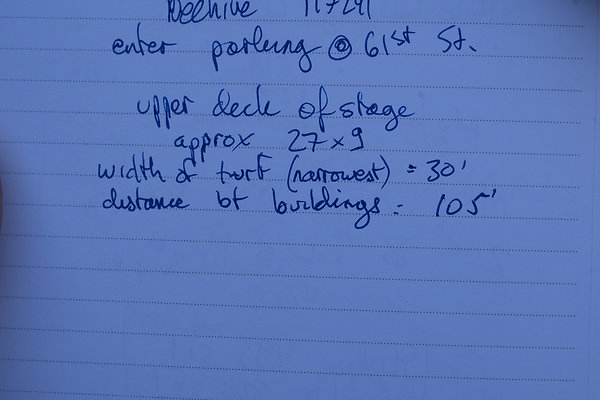 Beehive
enter parking @ 61st St.
upper deck of stage
approx 27 x 9
width of turf (narrowest) = 30'
distance bt buildings = 105'